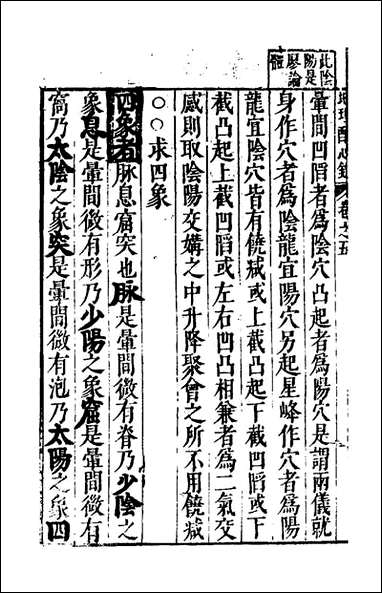 此陰
陽是
廖論
體
暈間凹陷者為陰穴凸起者為陽穴是謂兩儀就
身作穴者為陰龍宜陽穴另起星峰作穴者為陽
龍宜陰穴皆有饒减或上截凸起下截凹陷或下
截凸起上截凹陷或左右凹凸相兼者為二氣交
感則取陰陽交媾之中升降聚會之所不用饒减
○○求四象
四象者脉息窟突也脉是暈間微有脊乃少陰之
象息是暈間微有形乃少陽之象窟是暈間微有
窩乃太陰之象突是暈間微有泡乃太陽之象四